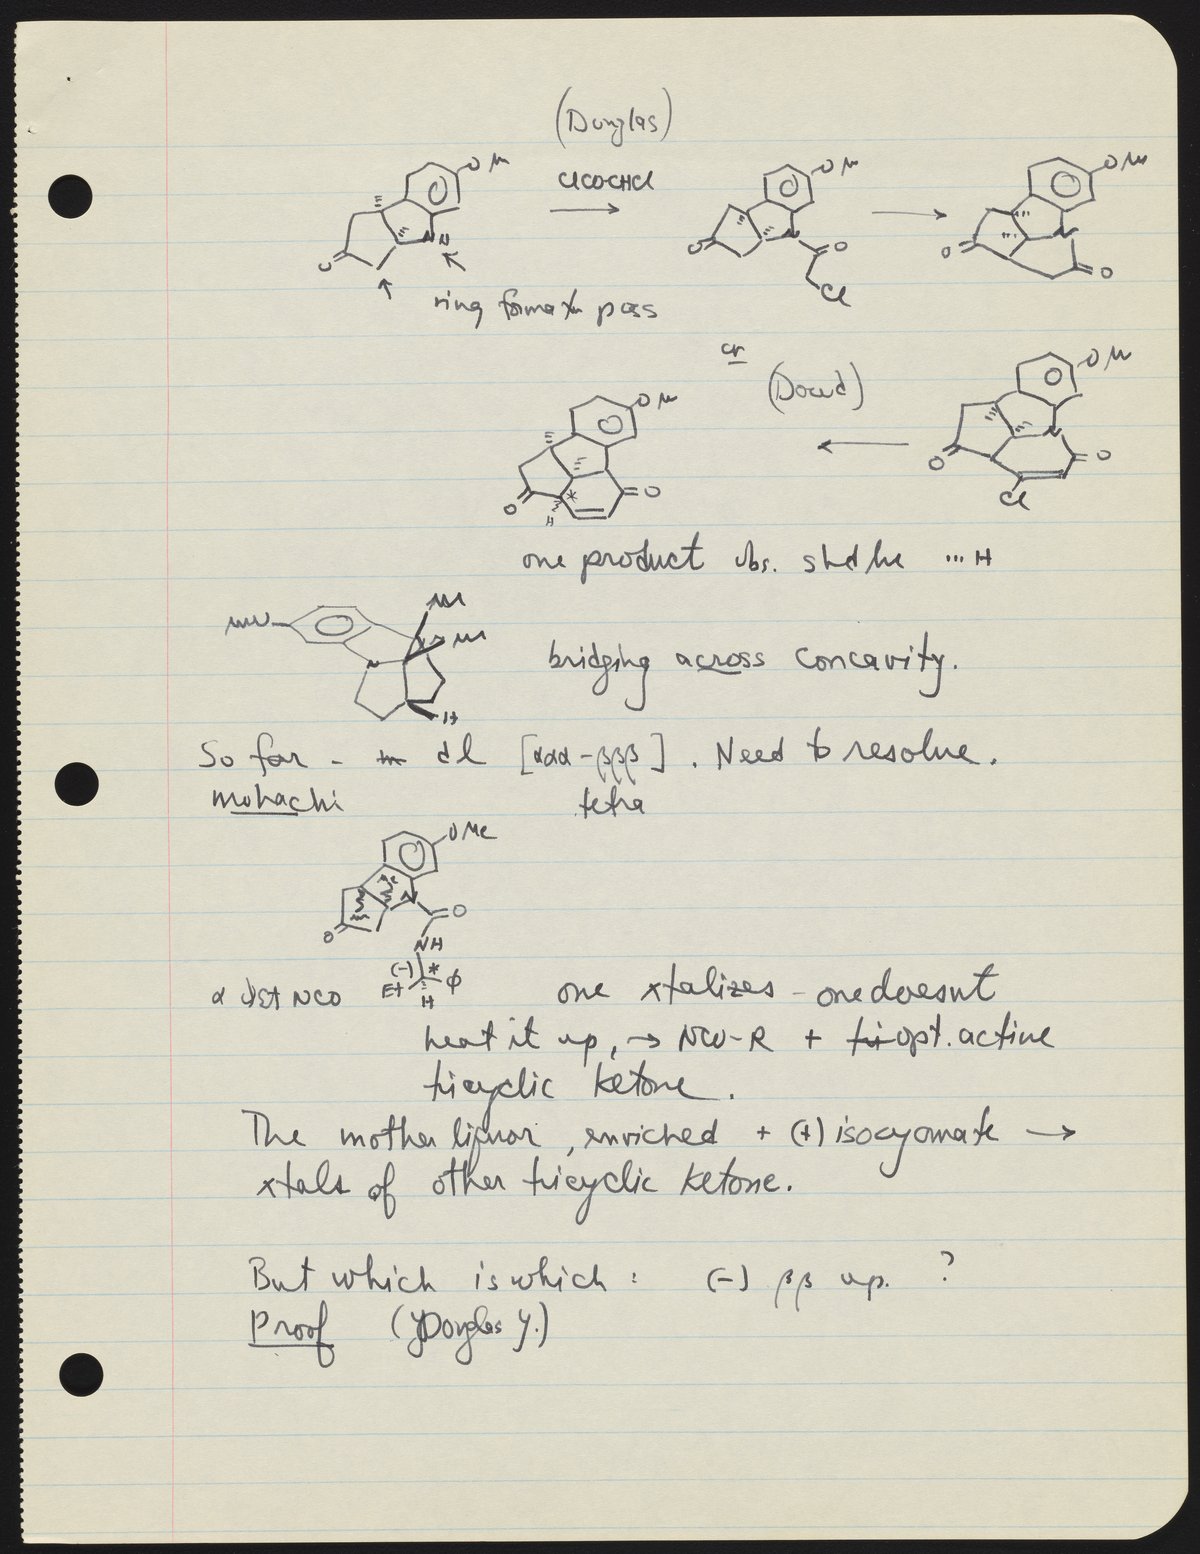 (Douglas)
OM ClCOCHCl OM OM
N N O N O N O
Cl
ring format'n poss
or
OM (Dowd) OM
O O O N O
* H Cl
one product obs. shd be ... H
M
MN M
N bridging across concavity.
H
So far - dl [ααα - βββ]. Need to resolve.
Mohachi tetra
OMe
N O
O NH
(-) *
Et φ
H
α Et NCO one xtalizes - one doesnt
heat it up, → NCO-R + opt. active
tricyclic ketone.
The mother liquor, enriched + (+) isocyanate →
xtals of other tricyclic ketone.
But which is which: (-) ββ up. ?
Proof (Douglas Y.)